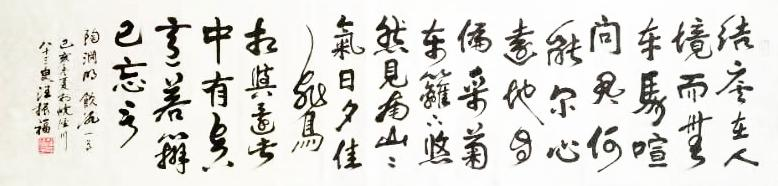 結廬在人
境而無
车馬喧
问君何
能尔心
遠地自
偏采菊
东籬下悠
然見南山〻
氣日夕佳
飛鳥
相與還此
中有真
意若辨
已忘言
陶渊明飲酒一首
己亥年夏於川
八十三叟汪振福